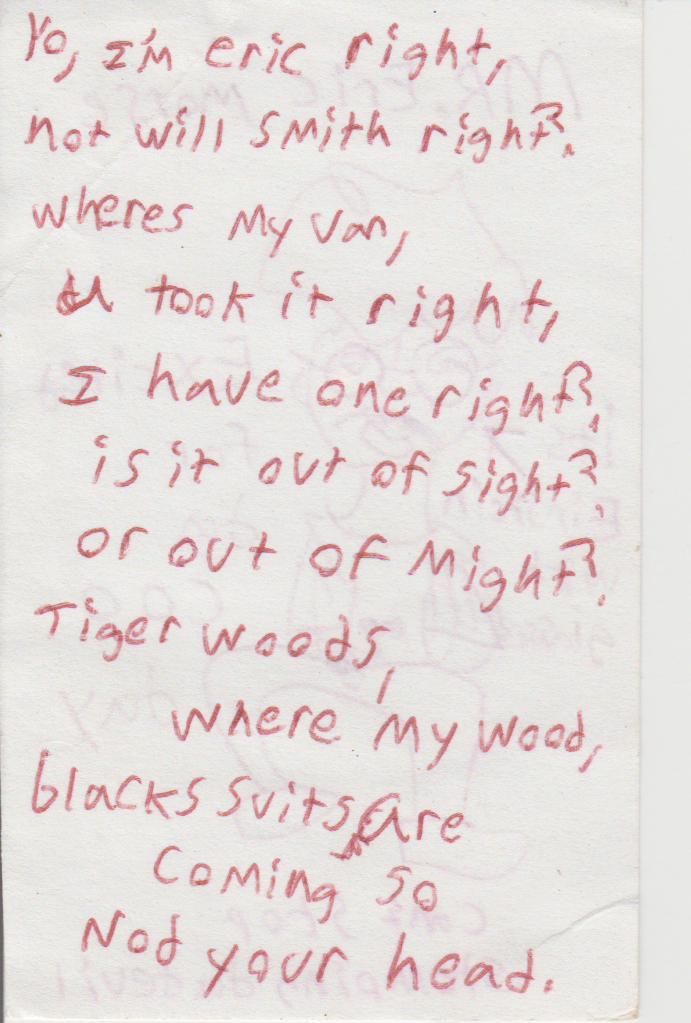 Yo, I'm eric right,
not will smith right?
wheres my van,
u took it right,
I have one right?
is it out of sight?
or out of Might?
Tiger woods,
where my wood,
blacks suits are
coming so
Nod your head.